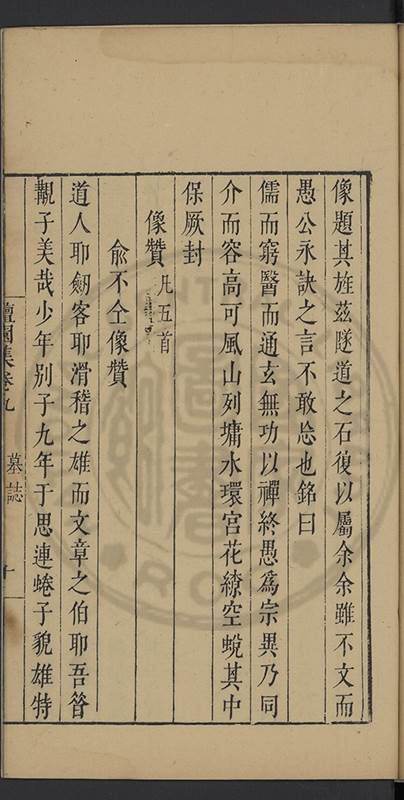 像題其旌茲隧道之石復以屬余余雖不文而
愚公永訣之言不敢忘也銘曰
儒而窮醫而通玄無功以禪終愚爲宗異乃同
介而容高可風山列墉水環宮花繚空蛻其中
保厥封
像贊凡五首
俞不仝像贊
道人耶劒客耶滑稽之雄而文章之伯耶吾昔
覯子美哉少年别子九年于思連蜷子貌雄特
檀園集卷九
墓誌
十